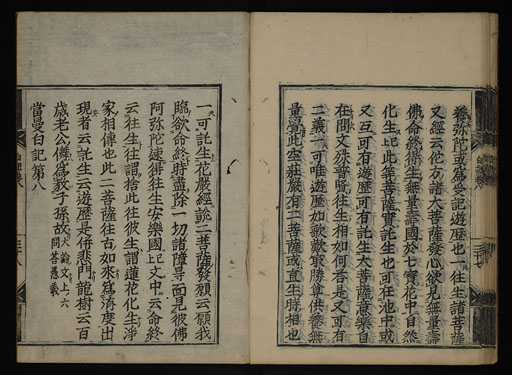 養弥陀或爲受記遊歴也二往生諸菩薩
又經云佗方諸大菩薩發心欲見無量壽
佛命終得生無量壽國於七寶花中自然
化生上此等菩薩實託生也可在池中或
又互可有遊歴可有託生大菩薩意樂自
在問文殊普賢往生相如何荅是又可有
二義一可唯遊歴如歎最勝章供養無
量覺此坐莊嚴有二菩薩或直生時相也
一可託生花嚴經説二菩薩發願云願我
臨欲命終時盡除一切諸障㝵面見彼佛
阿弥陀速得往生安樂國上文中云命終
云往生往謂捨此往彼生謂蓮花化生淨
家相傳也此二菩薩往古如來爲濟度出
現者云託生云遊歴是併悲門龍樹云百
歳老公儛爲教子孫故大論文上六
同荅愚義
當曼白記第八